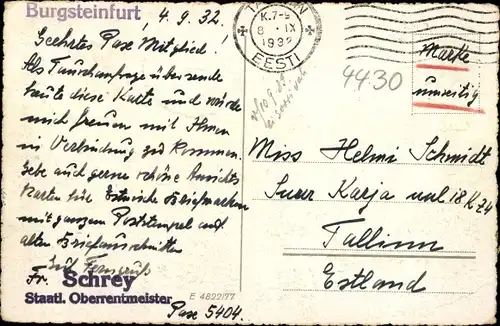 Burgsteinfurt, 4.9.32.
Geehrtes Pax Mitglied!
Als Tauschanfrage übersende
heute diese Karte und würde
mich freuen mit Ihnen
in Verbindung zu kommen.
Gebe auch gerne schöne Ansichts
Karten für Estnische Briefmarken
mit ganzem Poststempel auf
alten Briefausschnitten
Fr. Schrey
Staatl. Oberrentmeister
Pax 5404.
E 4822/77
TALLINN
K.7-9
8. IX
1932
EESTI
4430
Marke
umseitig
Miss Helmi Schmidt
Suur Karja 18 K74
Tallinn
Estland